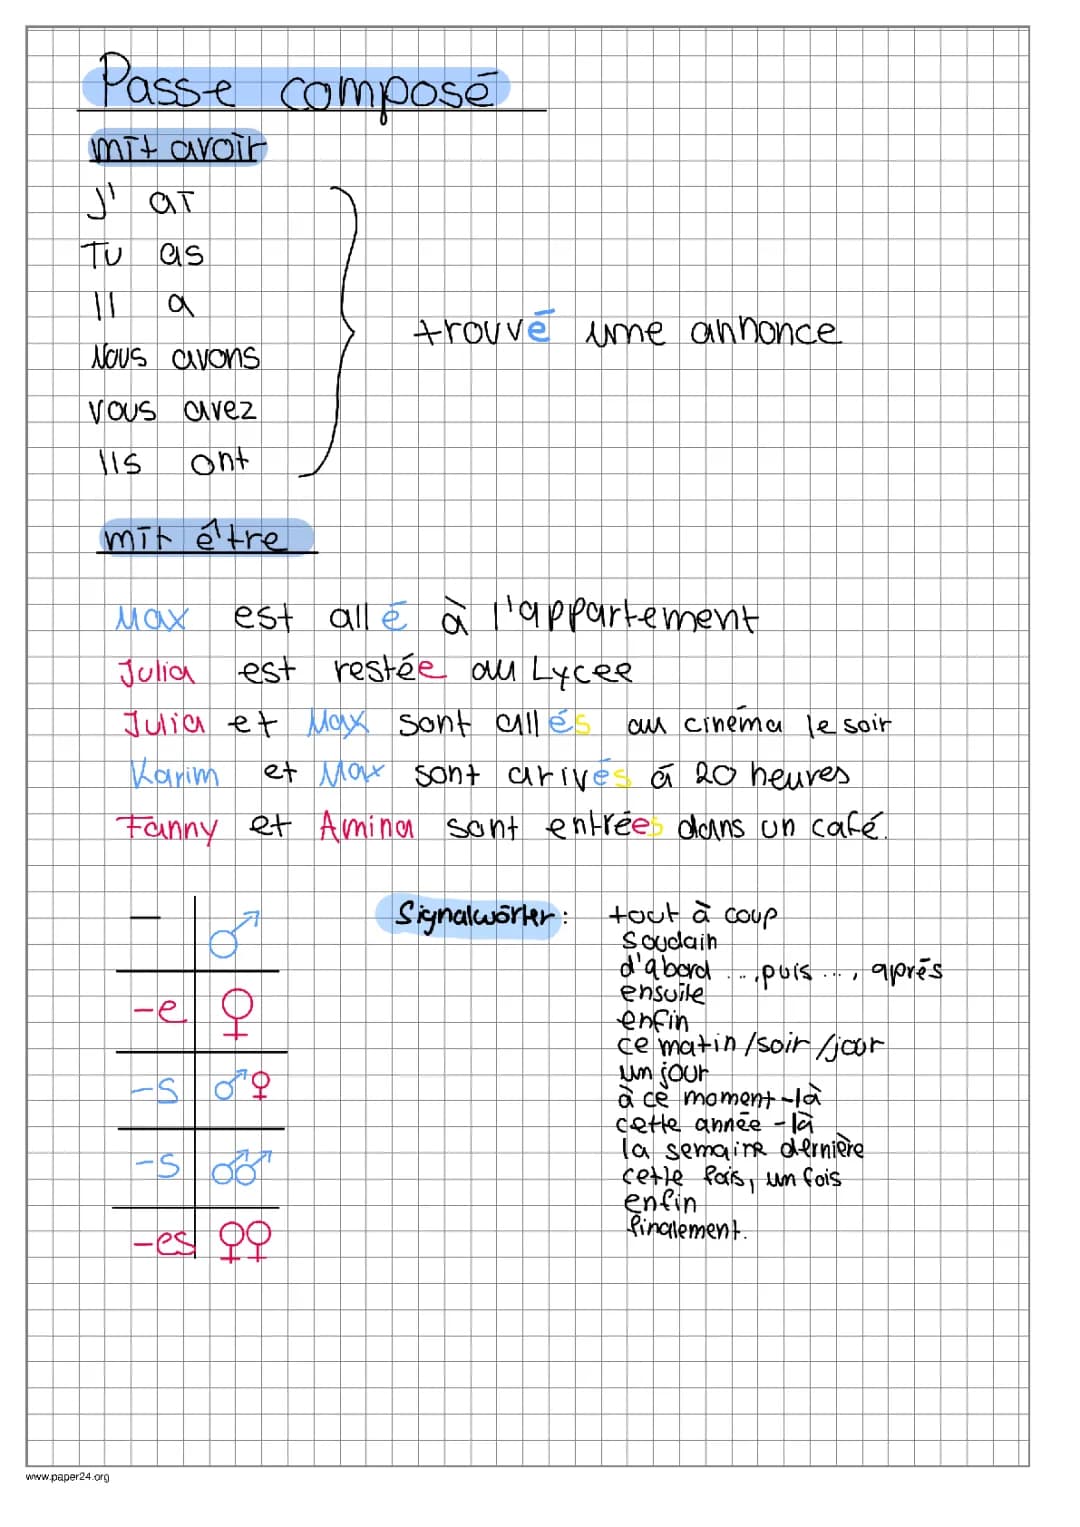 Passe composé
mit avoir
J' ai
Tu as
Il a
trouvé une annonce
Nous avons
vous avez
Ils ont
mit être
Max est allé à l'appartement
Julia est restée au Lycee
Julia et Max sont allés au cinéma le soir
Karim et Max sont arivés à 20 heures
Fanny et Amina sont entrées dans un café.
— ♂
-e ♀
-s ♂♀
-s ♂♂
-es ♀♀
Signalwörter: tout à coup
Soudain
d'abord ..., puis ..., après
ensuite
enfin
ce matin/soir/jour
un jour
à ce moment-là
cette année-là
la semaine dernière
cette fois, un fois
enfin
finalement.
www.paper24.org